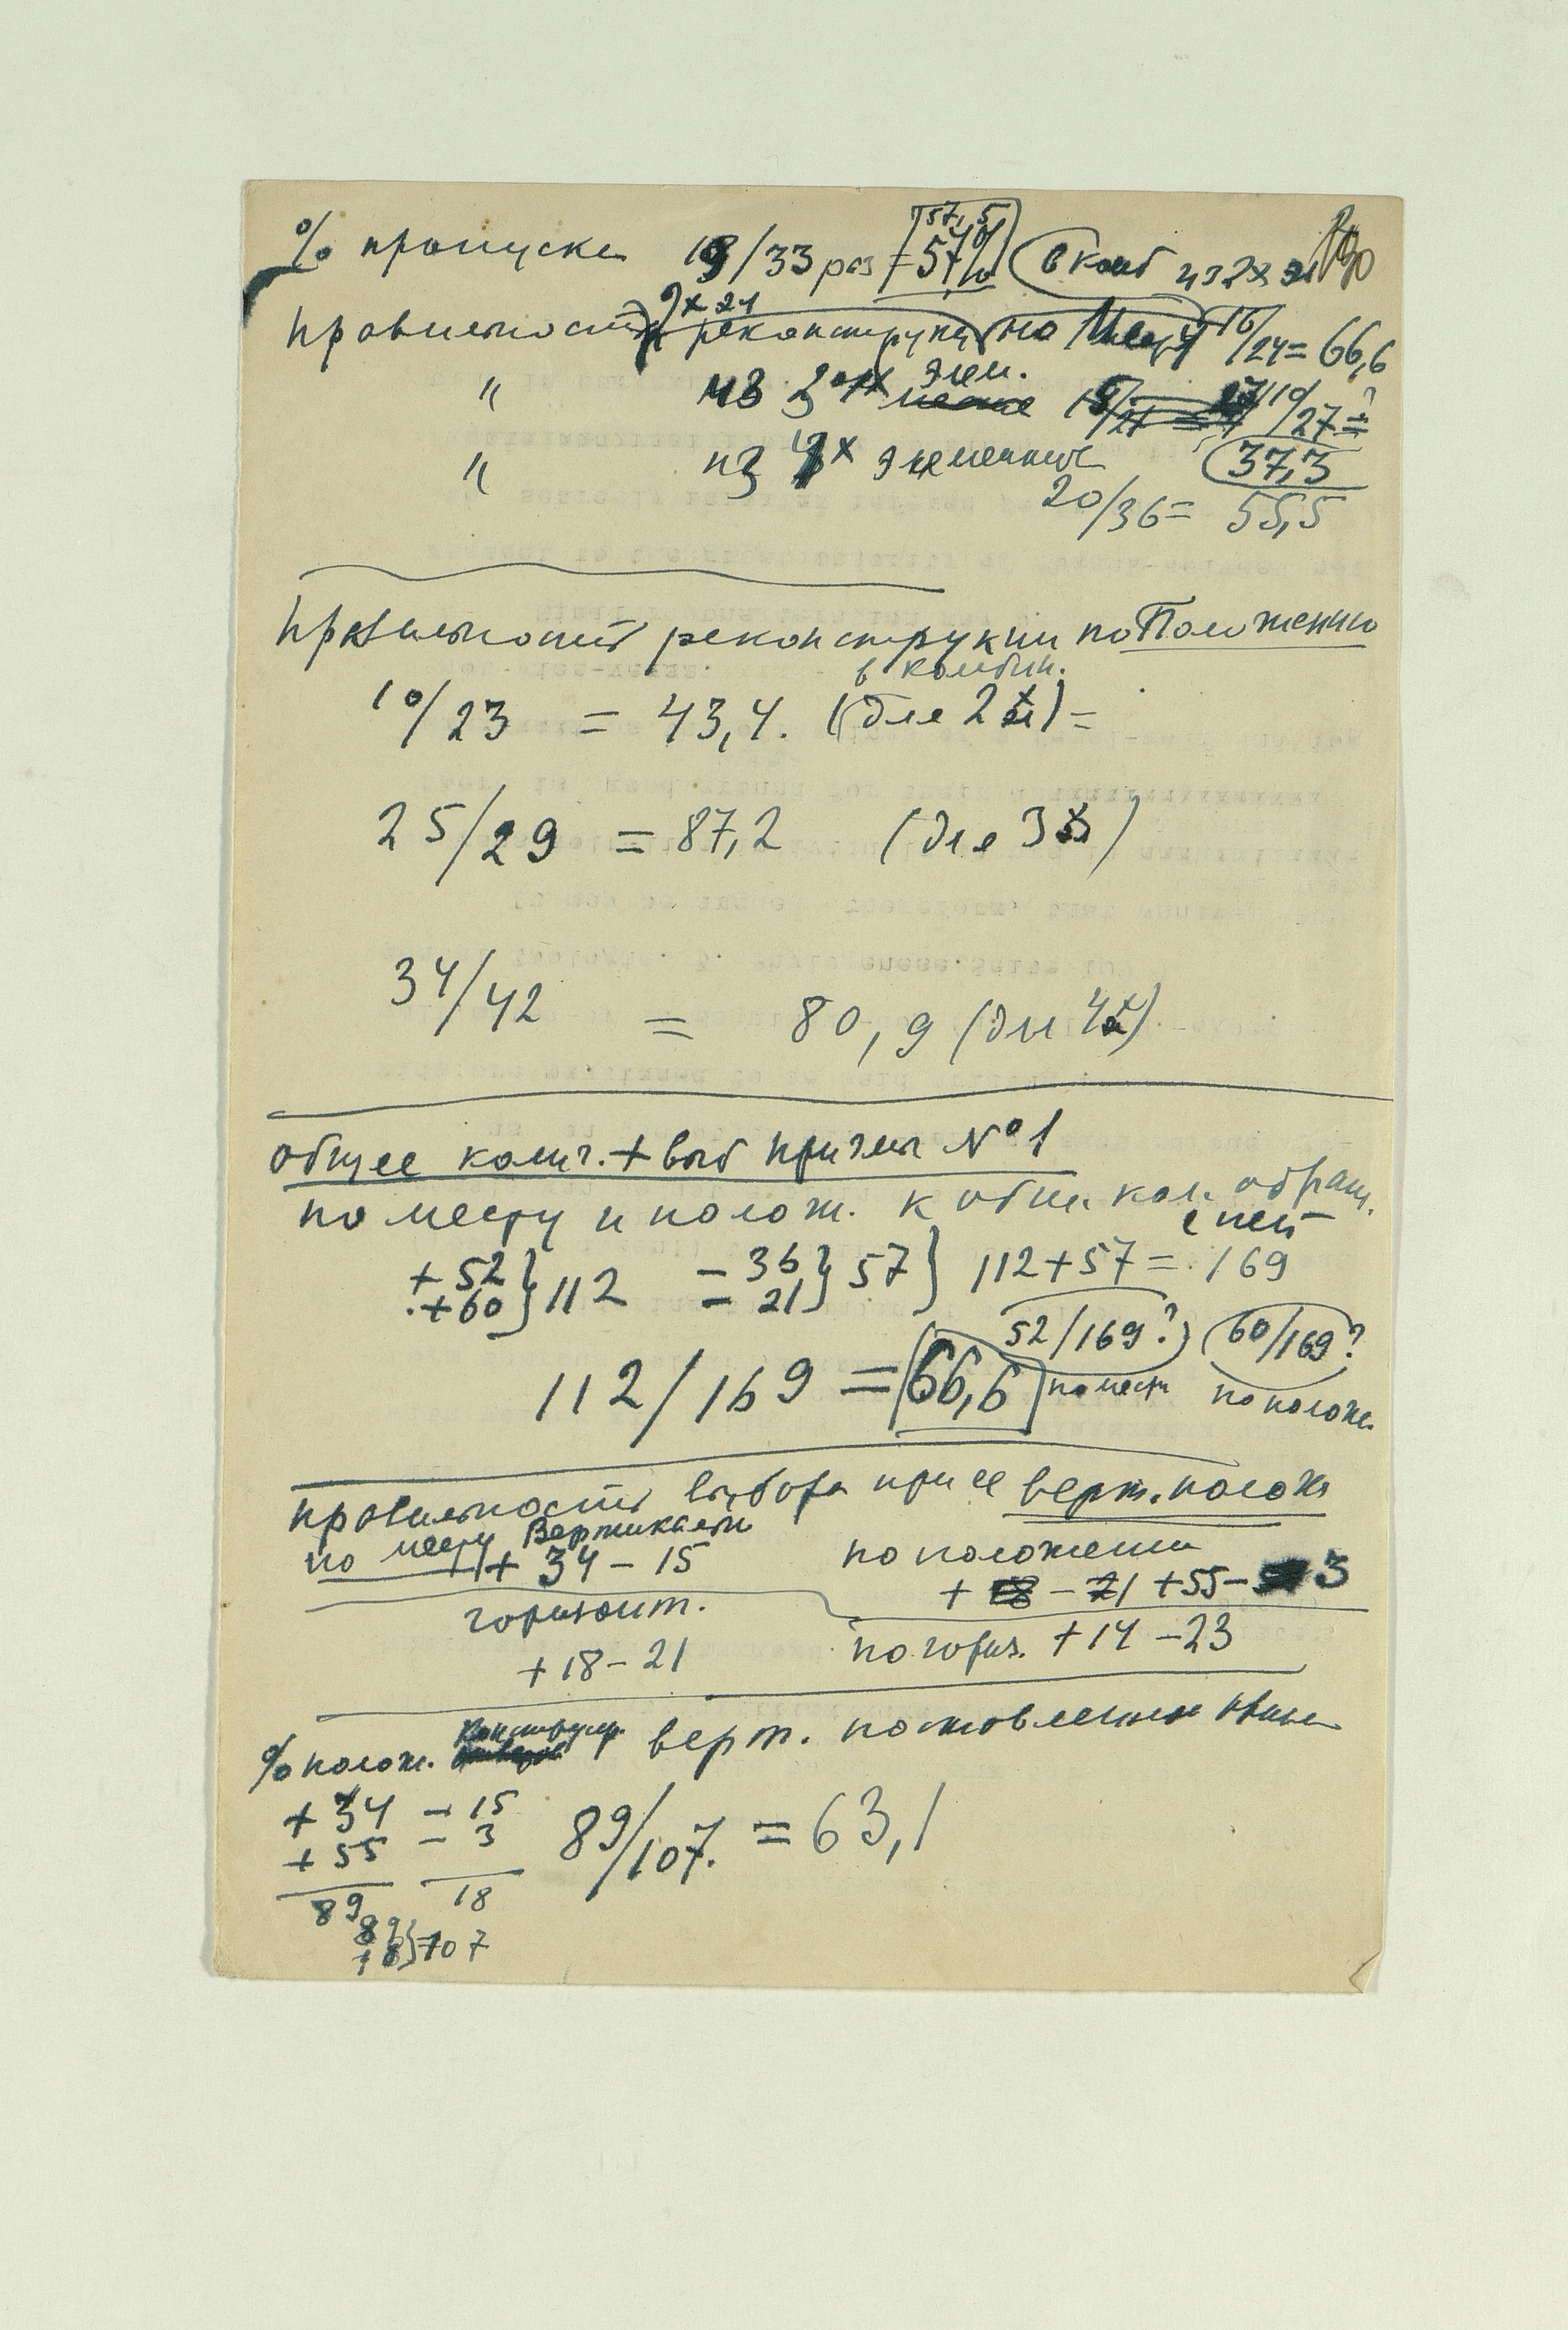 57,5
% пропуска 19/33 раз = 57% в комб из 2х эл
2х эл
Правильность реконструкц по Месту 16/24 = 66,6
" из 3х элем. 10/27 = ?
37,3
" из 4х элементов
20/36 = 55,5
Правильность реконструкции по Положению
в комбин.
10/23 = 43,4. (для 2х) =
25/29 = 87,2 (для 3х)
34/42 = 80,9 (для 4х)
Общее колич. + выб приема №1
по месту и полож. к общ. кол. образ.
+ 52 } 112 - 36 } 57 } 112 + 57 = 169
+ 60 - 21
52/169? 60/169?
112/169 = 66,6 по месту по полож.
Правильность выбора приема верт. полож
по месту Вертикаль
+ 34 - 15
по положению
+ 18 - 21 + 55 - 3
горизонт.
+ 18 - 21
по гориз. + 14 - 23
% полож. верт. поставленных
+ 34 - 15
+ 55 - 3
89/107. = 63,1
89 18
89
18 } = 107